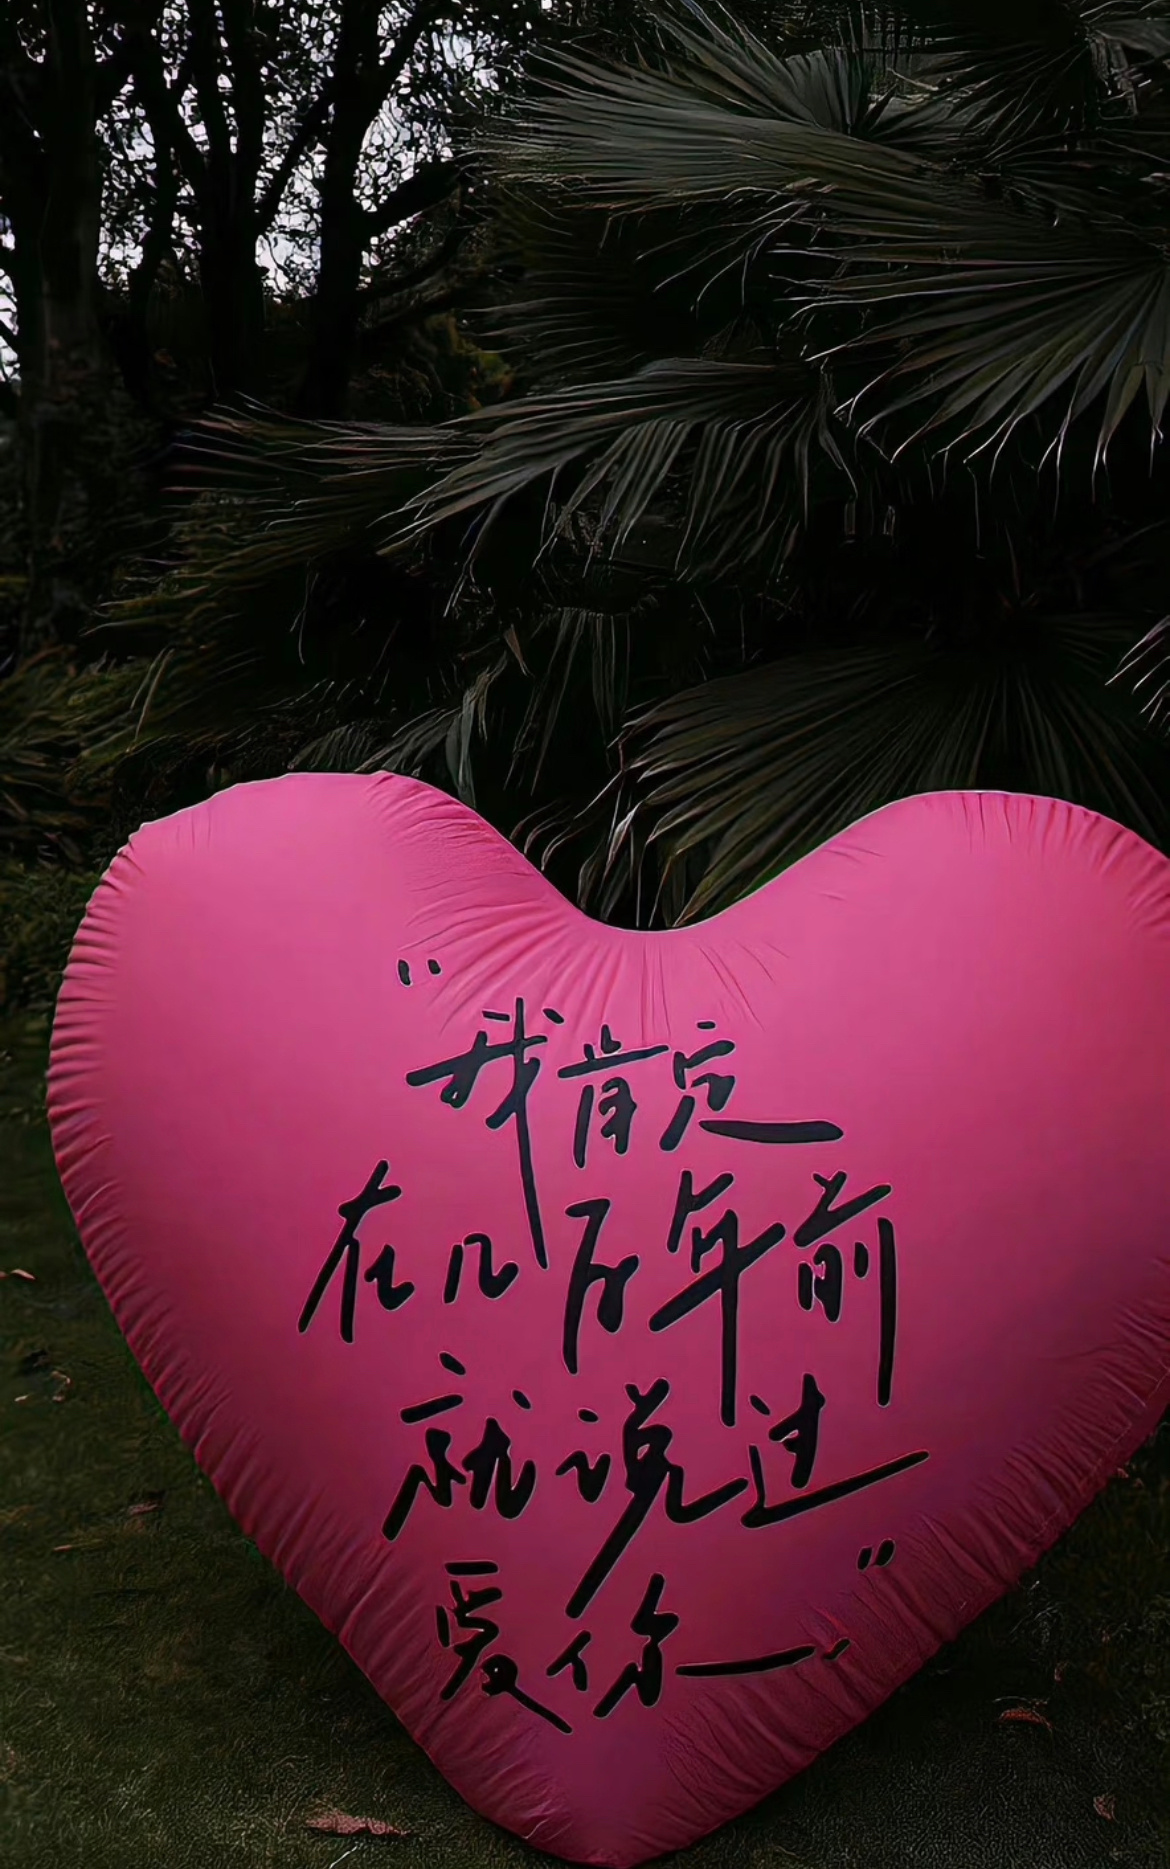 “我肯定
在几百年前
就说过
爱你—.”